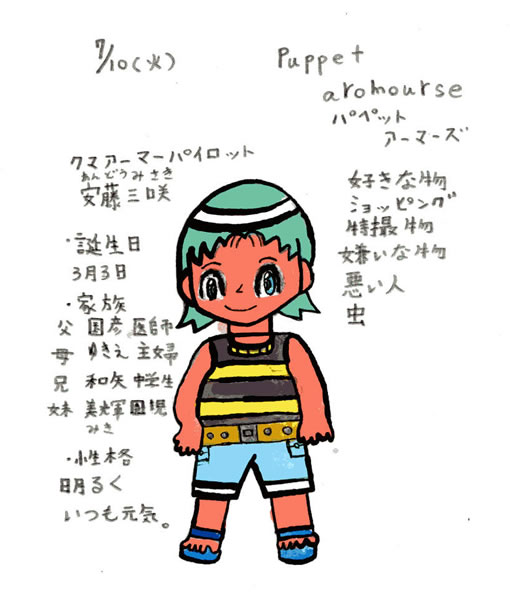 7/10(火)
Puppet
aromourse
パペット
アーマーズ
クマアーマーパイロット
あんどうみさき
安藤三咲
・誕生日
3月3日
・家族
父 国彦 医師
母 ゆきえ 主婦
兄 和矢 中学生
妹 美輝 園児
みき
・性格
明るく
いつも元気。
好きな物
ショッピング
特撮物
嫌いな物
悪い人
虫